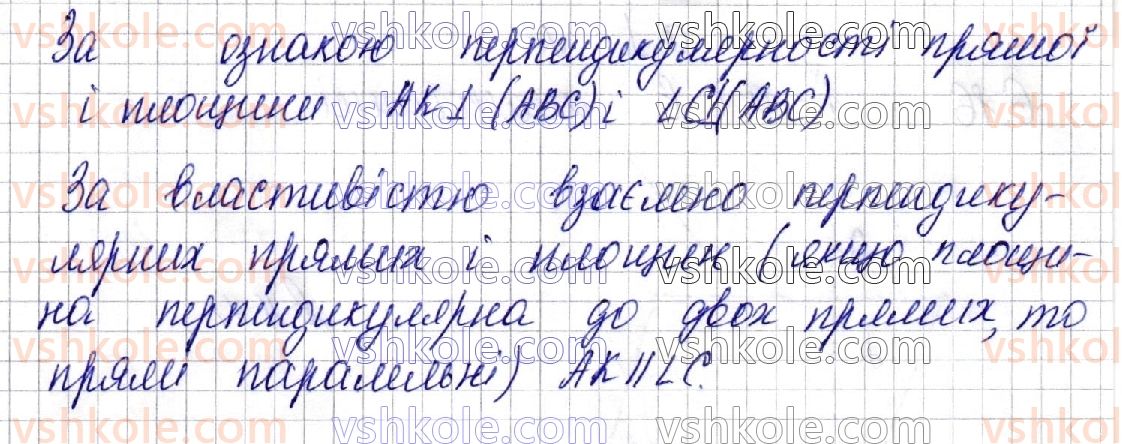 За ознакою перпендикулярності прямої
і площини AK⊥(ABC) і LC⊥(ABC)
За властивістю взаємно перпендику-
лярних прямих і площин (якщо площи-
на перпендикулярна до двох прямих, то
прямі паралельні) AK || LC.